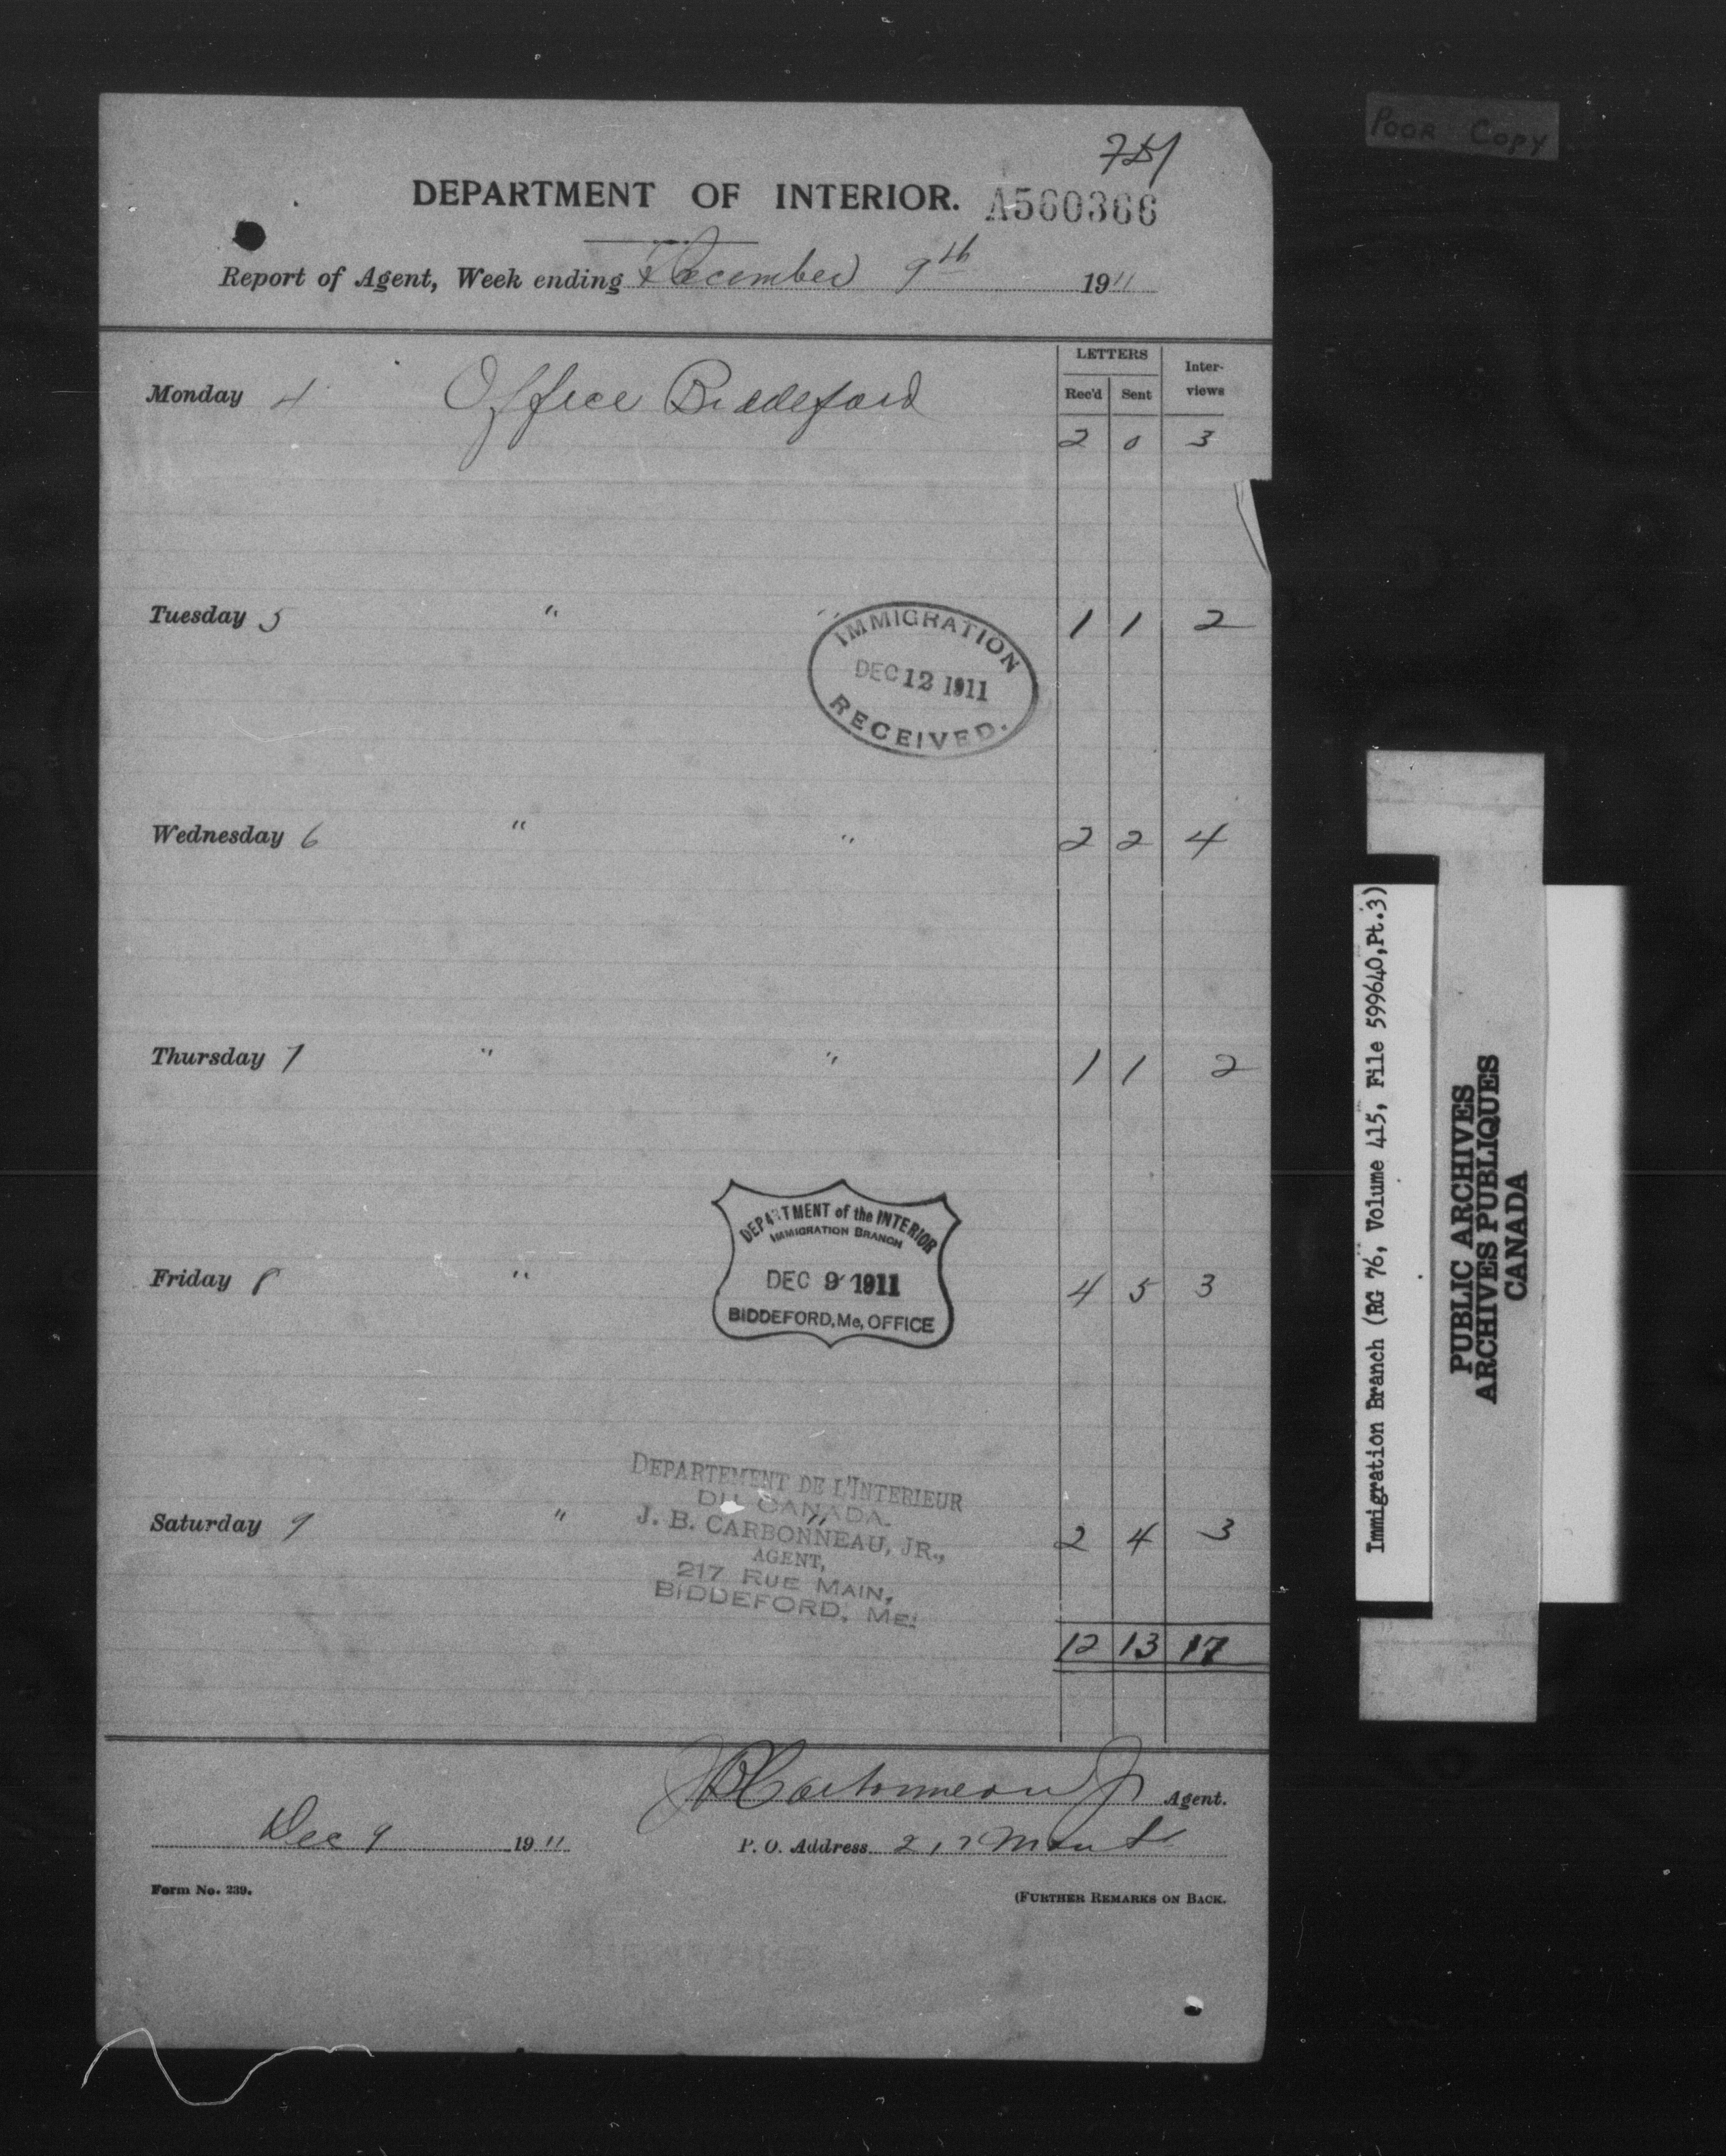 POOR COPY
751
DEPARTMENT OF INTERIOR. A560366
Report of Agent, Week ending December 9th 1911
LETTERS
Rec'd Sent Inter-views
Monday 4 Office Biddeford
2 0 3
Tuesday 5 " " 1 1 2
IMMIGRATION
DEC 12 1911
RECEIVED.
Wednesday 6 " " 2 2 4
Thursday 7 " " 1 1 2
DEPARTMENT of the INTERIOR
IMMIGRATION BRANCH
DEC 9 1911
BIDDEFORD, Me, OFFICE
Friday 8 " 4 5 3
DEPARTEMENT DE L'INTERIEUR
DU CANADA.
J. B. CARBONNEAU, JR.,
AGENT,
217 RUE MAIN,
BIDDEFORD, ME.
Saturday 9 " " 2 4 3
12 13 17
JB Carbonneau Jr Agent.
Dec 9 1911 P. O. Address 217 Main St
Form No. 239. (FURTHER REMARKS ON BACK.
Immigration Branch (RG 76, Volume 415, File 599640,Pt.3)
PUBLIC ARCHIVES
ARCHIVES PUBLIQUES
CANADA